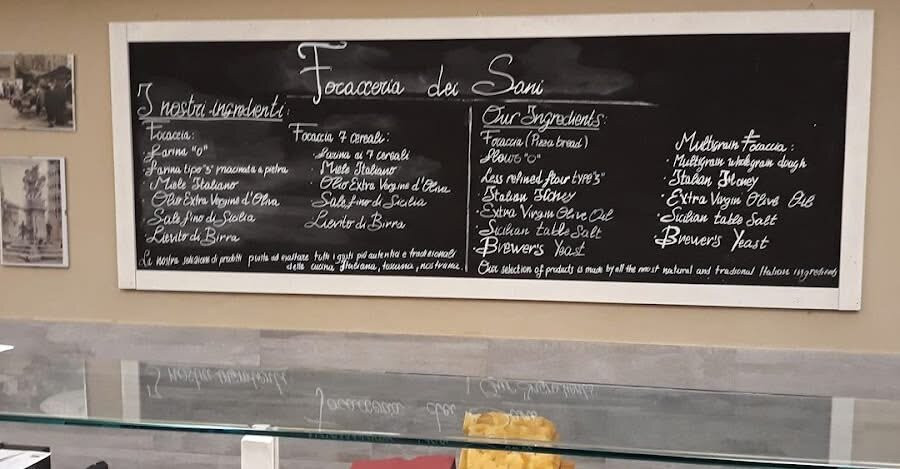 Focacceria dei Sani
I nostri ingredienti:
Focaccia:
· Farina "0"
· Farina tipo "5" macinata a pietra
· Miele Italiano
· Olio Extra Vergine d'Oliva
· Sale fino di Sicilia
· Lievito di Birra
Focaccia 7 cereali:
· Farina ai 7 cereali
· Miele Italiano
· Olio Extra Vergine d'Oliva
· Sale fino di Sicilia
· Lievito di Birra
La nostra selezione di prodotti punta ad esaltare tutti i gusti più autentici e tradizionali
della cucina Italiana, toscana, nostrana.
Our Ingredients:
Focaccia (Pizza bread)
· Flour "0"
· Less refined flour type "5"
· Italian Honey
· Extra Virgin Olive Oil
· Sicilian table Salt
· Brewer's Yeast
Multigrain Focaccia:
· Multigrain wholegrain dough
· Italian Honey
· Extra Virgin Olive Oil
· Sicilian table Salt
· Brewer's Yeast
Our selection of products is made by all the most natural and tradional Italian ingredients